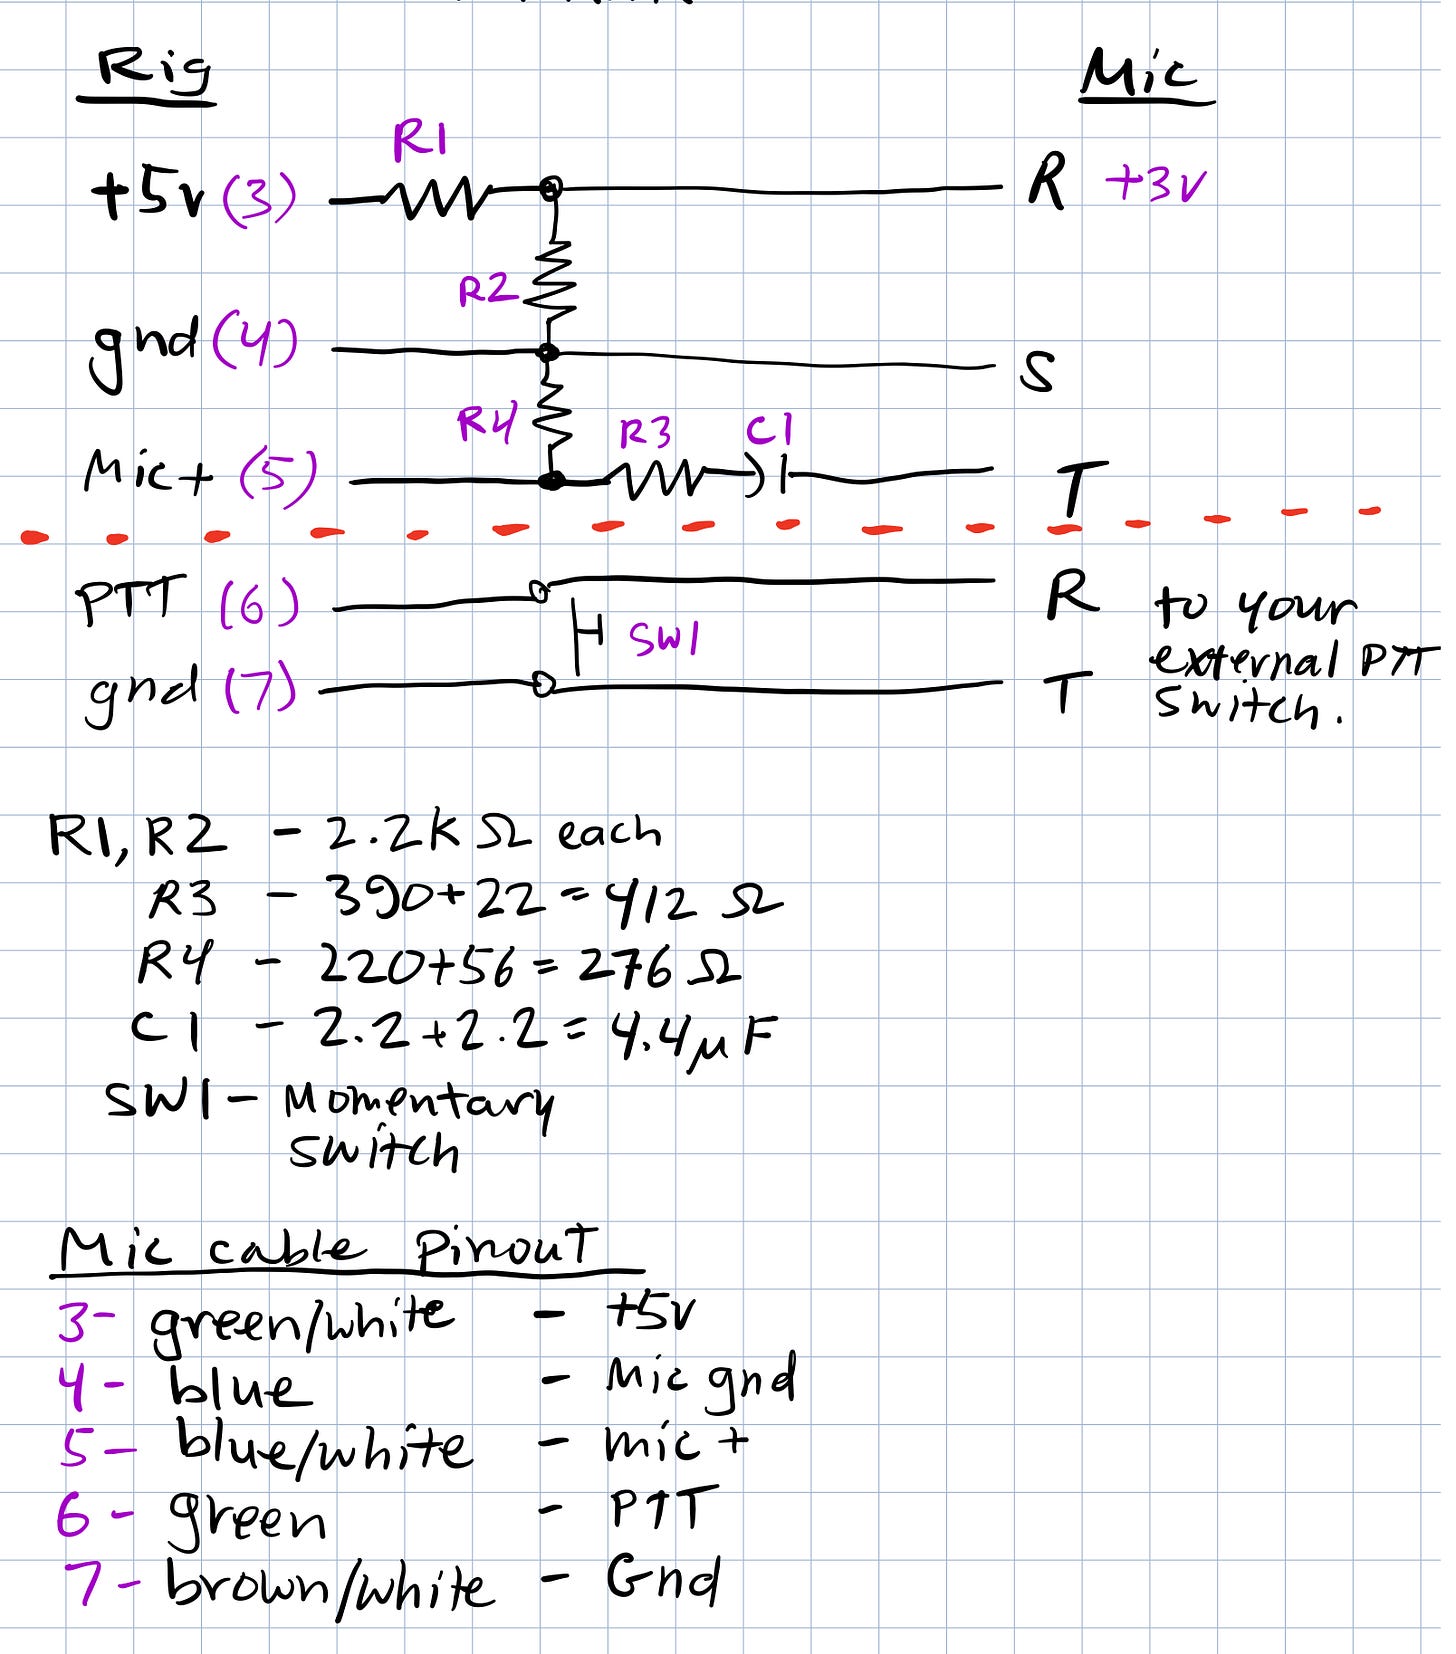 Rig Mic
R1
+5v (3) R +3v
R2
gnd (4) S
R4 R3 C1
Mic+ (5) T
PTT (6) R to your
SW1 external PTT
gnd (7) T switch.
R1, R2 - 2.2K Ω each
R3 - 390+22 = 412 Ω
R4 - 220+56 = 276 Ω
C1 - 2.2+2.2 = 4.4μF
SW1 - Momentary
switch
Mic cable Pinout
3- green/white - +5v
4- blue - Mic gnd
5- blue/white - mic+
6- green - PTT
7- brown/white - Gnd